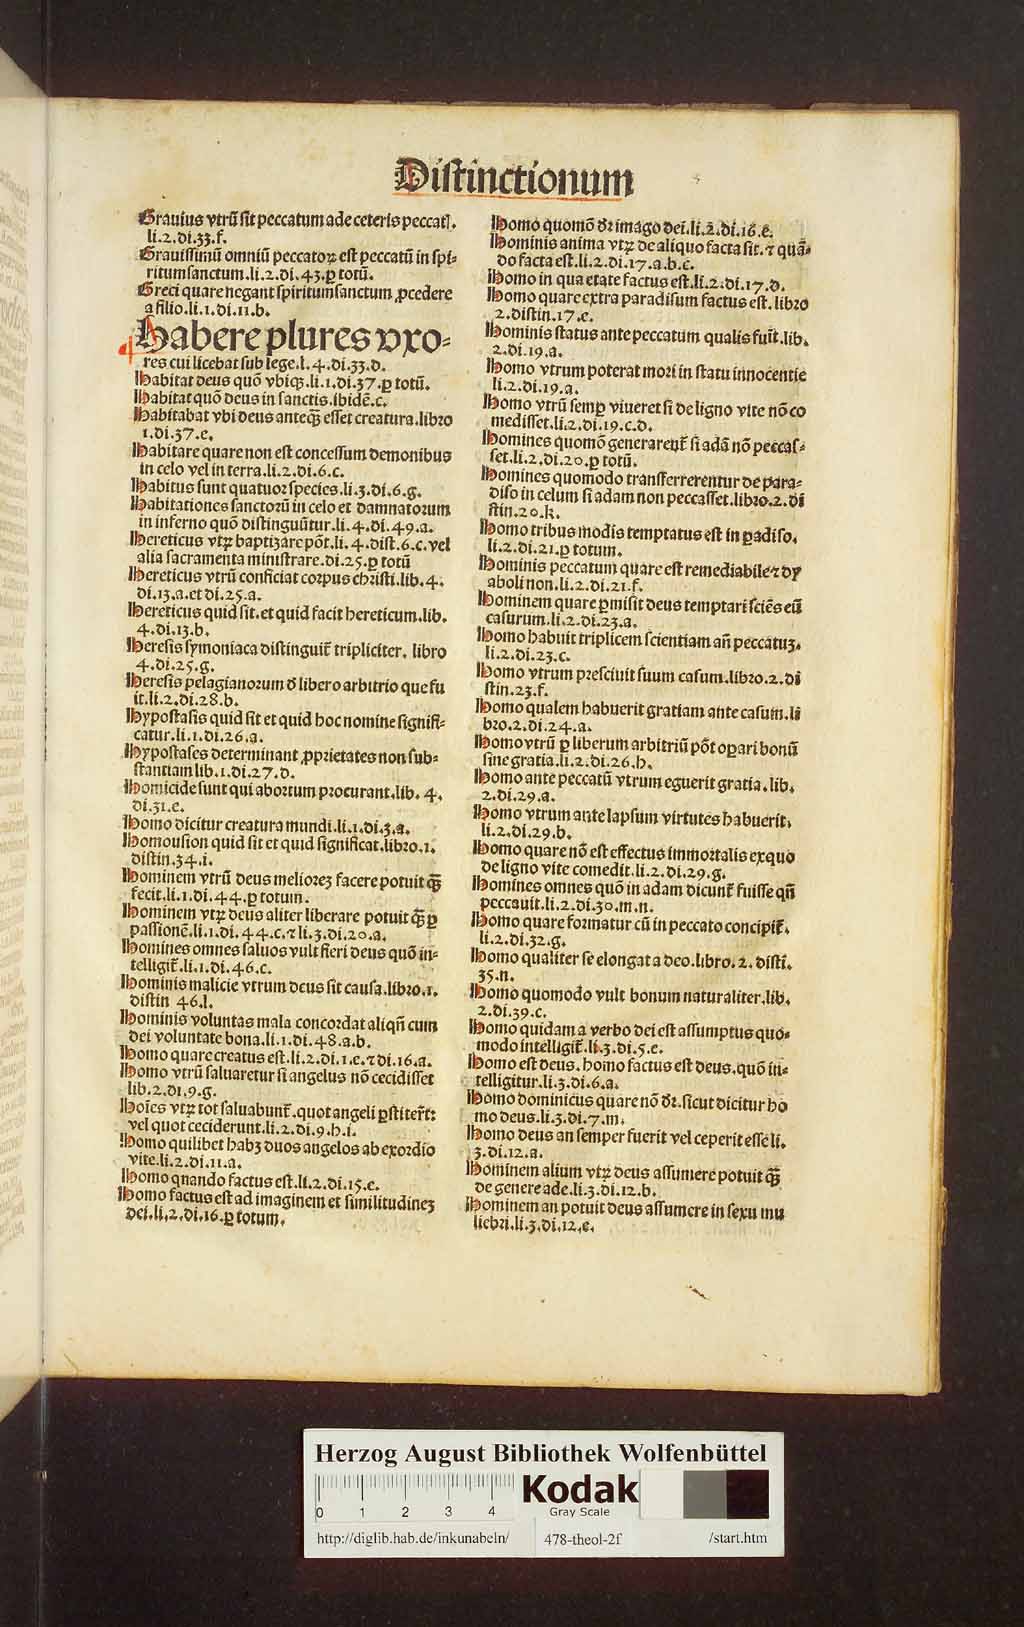 Distinctionum
Grauius vtrũ sit peccatum ade ceteris peccatꝭ.
li.2.di.33.f.
Grauissimũ omniũ peccatoꝝ est peccatũ in spi-
ritumsanctum.li.2.di.43.ꝑ totũ.
Greci quare negant spiritumsanctum ꝓcedere
a filio.li.1.di.11.b.
Habere plures vxo-
res cui licebat sub lege.l.4.di.33.d.
Habitat deus quõ vbiqꝫ.li.1.di.37.ꝑ totũ.
Habitat quõ deus in sanctis.ibidẽ.c.
Habitabat vbi deus anteqᷓꝫ esset creatura.libro
1.di.37.e.
Habitare quare non est concessum demonibus
in celo vel in terra.li.2.di.6.c.
Habitus sunt quatuor species.li.3.di.6.g.
Habitationes sanctorũ in celo et damnatorum
in inferno quõ distinguũtur.li.4.di.49.a.
Hereticus vtꝝ baptizare põt.li.4.dist.6.c.vel
alia sacramenta ministrare.di.25.ꝑ totũ
Hereticus vtrũ conficiat corpus christi.lib.4.
di.13.a.et di.25.a.
Hereticus quid sit.et quid facit hereticum.lib.
4.di.13.b.
Heresis symoniaca distinguit᷑ tripliciter. libro
4.di.25.g.
Heresis pelagianorum ď libero arbitrio que fu
it.li.2.di.28.b.
Hypostasis quid sit et quid hoc nomine signifi-
catur.li.1.di.26.a.
Hypostases determinant ꝓprietates non sub-
stantiam lib.1.di.27.d.
Homicide sunt qui abortum procurant.lib. 4.
di.31.e.
Homo dicitur creatura mundi.li.1.di.3.a.
Homousion quid sit et quid significat.libro.1.
distin.34.i.
Hominem vtrũ deus meliorẽ facere potuit qᷓꝫ
fecit.li.1.di.44.ꝑ totum.
Hominem vtꝝ deus aliter liberare potuit qᷓꝫ ꝑ
passionẽ.li.1.di.44.c.⁊ li.3.di.20.a.
Homines omnes saluos vult fieri deus quõ in-
telligit᷑.li.1.di.46.c.
Hominis malicie vtrum deus sit causa.libro.1.
distin 46.l.
Hominis voluntas mala concordat aliqñ cum
dei voluntate bona.li.1.di.48.a.b.
Homo quare creatus est.li.2.di.1.e.⁊ di.16.a.
Homo vtrũ saluaretur si angelus nõ cecidisset
lib.2.di.9.g.
Hoĩes vtꝝ tot saluabunt᷑.quot angeli ꝑstiterũt:
vel quot ceciderunt.li.2.di.9.h.i.
Homo quilibet habꝫ duos angelos ab exordio
vite.li.2.di.11.a.
Homo quando factus est.li.2.di.15.e.
Homo factus est ad imaginem et similitudineꝫ
dei.li.2.di.16.ꝑ totum.
Homo quomõ dr̃ imago dei.li.2.di.16.e.
Hominis anima vtꝝ de aliquo facta sit.⁊ quã-
do facta est.li.2.di.17.a.b.c.
Homo in qua etate factus est.li.2.di.17.d.
Homo quare extra paradisum factus est. libro
2.distin.17.e.
Hominis status ante peccatum qualis fuit̃.lib.
2.di.19.a.
Homo vtrum poterat mori in statu innocentie
li.2.di.19.a.
Homo vtrũ semꝑ viueret si de ligno vite nõ co
medisset.li.2.di.19.c.d.
Homines quomõ generarent᷑ si adã nõ peccas-
set.li.2.di.20.ꝑ totũ.
Homines quomodo transferrerentur de para-
diso in celum si adam non peccasset.libro.2.di
stin.20.k.
Homo tribus modis temptatus est in ꝑadiso.
li.2.di.21.ꝑ totum.
Hominis peccatum quare est remediabile ⁊ dy
aboli non.li.2.di.21.f.
Hominem quare ꝑmisit deus temptari sciẽs eũ
casurum.li.2.di.23.a.
Homo habuit triplicem scientiam añ peccatuꝫ.
li.2.di.23.c.
Homo vtrum presciuit suum casum.libro.2.di
stin.23.f.
Homo qualem habuerit gratiam ante casum.li
bro.2.di.24.a.
Homo vtrũ ꝑ liberum arbitriũ põt oꝑari bonũ
sine gratia.li.2.di.26.h.
Homo ante peccatũ vtrum eguerit gratia.lib.
2.di.29.a.
Homo vtrum ante lapsum virtutes habuerit.
li.2.di.29.b.
Homo quare nõ est effectus immortalis exquo
de ligno vite comedit.li.2.di.29.g.
Homines omnes quõ in adam dicunt᷑ fuisse qñ
peccauit.li.2.di.30.m.n.
Homo quare formatur cũ in peccato concipit᷑.
li.2.di.32.g.
Homo qualiter se elongat a deo.libro.2. disti.
35.n.
Homo quomodo vult bonum naturaliter.lib.
2.di.39.c.
Homo quidam a verbo dei est assumptus quo-
modo intelligit᷑.li.3.di.5.e.
Homo est deus. homo factus est deus.quõ in-
telligitur.li.3.di.6.a.
Homo dominicus quare nõ dr̃.sicut dicitur ho
mo deus.li.3.di.7.m.
Homo deus an semper fuerit vel ceperit esse li.
3.di.12.a.
Hominem alium vtꝝ deus assumere potuit qᷓꝫ
de genere ade.li.3.di.12.b.
Hominem an potuit deus assumere in sexu mu
liebri.li.3.di.12.e.
Herzog August Bibliothek Wolfenbüttel
0 1 2 3 4
Kodak
Gray Scale
http://diglib.hab.de/inkunabeln/ 478-theol-2f /start.htm